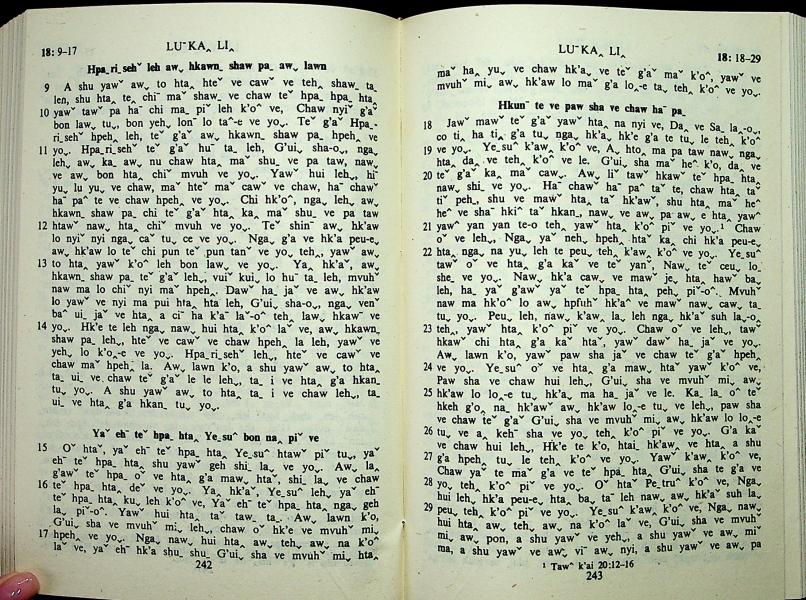 18: 9-17
LUˉ KAꞈ LIꞈ
Hpaˍ riˍ sehˇ leh awˬ hkawnˍ shaw paˍ awˬ lawn
9 A shu yawˇ awˬ to htaꞈ hteˇ ve cawˇ ve tehˬ shawˍ taˍ
len, shu htaꞈ teˬ chiˉ maˇ shawˍ ve chaw teˇ hpaˍ htaꞈ
10 yawˇ tawˇ pa haˉ chi maˍ piˇ leh k'oˆ ve, Chaw nyiˇ g'aˇ
bon law tuˬ, bon yehˬ lonˉ lo taˆ-e ve yoˬ. Teˇ g'aˇ Hpaˍ
riˍ sehˇ leh, teˇ g'aˇ awˬ hkawnˍ shaw paˍ hpehˬ ve
11 yoˬ. Hpaˍ riˍ sehˇ teˇ g'aˇ huˉ taˍ leh, G'uiˬ sha-oˬ, ngaˍ
lehˬ, awˬ kaˍ awˬ nu chaw htaˍ maˇ shuˍ ve pa taw, nawˬ
ve awˬ bon htaꞈ chiˇ mvuhˇ ve yoˬ. Yawˇ hui lehˬ, hiˉ
yuˬ lu yuˬ ve chaw, maˇ hteˇ maˇ cawˇ ve chaw, haˉ chawˇ
haˉ paˆ te ve chaw hpehˬ ve yoˬ. Chi hk'oˆ, ngaˍ lehˬ, awˬ
hkawnˍ shaw paˍ chi teˇ g'aˇ htaˬ ka maˇ shuˍ ve pa taw
12 htawˇ nawˬ htaꞈ chiˇ mvuhˇ ve yoˬ. Teˇ shinˉ awˬ hk'aw
lo nyiˇ nyi ngaˬ caˇ tuˬ ce ve yoˬ. Ngaˬ g'a ve hk'a peu-eˬ
awˬ hk'aw lo teˇ chi pun teˇ pun tanˇ ve yo tehˬ, yawˇ awˬ
13 to htaˬ yawˇ k'oˆ leh bon lawˬ ve yoˬ. Yaˬ hk'aˇ, awˬ
hkawnˍ shaw paˍ teˇ g'aˇ lehˬ, vuiˇ kuiˬ lo huˉ taˍ leh, mvuhˇ
naw ma lo chiˇ nyi maˇ hpehˬ. Dawˇ haˬ jaˇ ve awˬ hk'aw
lo yawˇ ve nyi ma pui htaˬ hta leh, G'uiˬ sha-oˬ, ngaˬ venˇ
baˆ uiˬ jaˇ ve htaˬ a ciˉ ha k'aˆ laˇ-oˆ tehˬ lawˬ hkawˇ ve
14 yoˬ. Hk'e te leh ngaˬ nawˬ hui htaˬ k'oˆ laˇ ve, awˬ hkawnˍ
shaw paˍ lehˬ, hteˇ ve cawˇ ve chaw hpehˬ la leh, yawˇ ve
yehˬ lo k'oˬ-e ve yoˬ. Hpaˍ riˍ sehˇ lehˬ, hteˇ ve cawˇ ve
chaw maˇ hpehˬ la. Awˬ lawn k'o, a shu yawˇ awˬ to htaˬ
taˍ ui ve chaw teˇ g'aˇ le le lehˬ, taˍ i ve htaˬ g'a hkanˍ
tuˬ yoˬ. A shu yawˇ awˬ to htaˬ taˍ i ve chaw lehˬ, taˍ
ui ve htaˬ g'a hkanˍ tuˬ yoˬ.
Yaˇ ehˉ teˇ hpaˍ htaˬ Yeˍsuˆ bon naˬ piˇ ve
15 Oˇ htaˇ, yaˇ ehˉ teˇ hpaˍ htaˬ Yeˍsuˆ htawˇ pi tuˬ, yaˇ
ehˉ teˇ hpaˍ htaˬ shu yawˇ geh shi laˍ ve yoˬ. Awˬ laˬ
g'awˇ teˇ hpaˍ oˇ ve htaˬ g'a maw htaˇ, shiˬ laˬ ve chaw
16 teˇ hpaˍ htaˬ deˇ ve yoˬ. Yaˬ hk'aˇ, Yeˍsuˆ lehˬ yaˇ ehˉ
teˇ hpaˍ htaˬ kuˬ leh k'oˆ ve, Yaˇ ehˉ teˇ hpaˍ htaˬ ngaˬ geh
laˬ piˇ-oˆ. Yawˇ hui htaˬ taˇ tawˬ taˬ. Awˬ lawn k'o,
G'uiˬ sha ve mvuhˇ miˬ lehˬ, chaw oˇ hk'e ve mvuhˇ miˬ
17 hpehˬ ve yoˬ. Ngaˬ nawˬ hui htaˬ awˬ tehˬ awˬ na k'oˆ
laˇ ve, yaˇ ehˉ hk'a shuˍ shuˍ G'uiˬ sha ve mvuhˇ miˬ htaˬ
242
LUˉ KAꞈ LIꞈ
18: 18-29
maˇ haˬ yuˬ ve chaw hk'aˬ ve teˇ g'aˇ maˇ k'oˆ, yawˇ ve
mvuhˇ miˬ awˬ hk'aw lo maˇ g'a loˬ-e taˬ tehˬ k'oˆ ve yoˬ.
Hkunˉ te ve paw sha ve chaw haˉ paˍ
18 Jawˇ mawˇ teˇ g'aˇ yawˇ htaˬ na nyi ve, Daˬ ve Saˍ laˍ-oˬ,
co tiˬ ha tiˬ g'a tuˬ ngaˬ hk'aˬ hk'e g'a te tuˬ le tehˬ k'oˆ
19 ve yoˬ. Yeˍsuˆ k'awˬ k'oˆ ve, Aˬ hto ma pa taw nawˬ ngaˬ
htaˬ daˬ ve tehˬ k'oˆ ve le. G'uiˬ sha maˇ heˆ k'o, daˬ ve
20 teˇ g'aˇ kaˬ maˇ caw. Awˬ liˇ tawˇ hkawˇ te hpaˍ htaˬ
nawˬ shiˍ ve yoˬ. Haˉ chawˇ haˉ paˆ taˇ te, chaw htaˬ taˆ
tiˇ pehˬ, shu ve mawˇ htaˬ taˇ hk'awˇ, shu htaˬ maˇ heˆ
heˆ ve sha hkiˆ taˇ hkanˬ, nawˬ ve awˬ pa awˬ e htaˬ yawˆ
21 yawˇ yan yan te-o tehˬ yawˇ htaˬ k'oˆ piˇ ve yoˬ.¹ Chaw
oˇ ve lehˬ, Ngaˬ yaˇ nehˬ hpehˬ htaˇ kaˬ chi hk'a peu-eˬ
22 htaˬ ngaˬ na yuˬ leh te peuˬ tehˬ k'awˬ k'oˆ ve yoˬ. Yeˍsuˆ
tawˇ oˇ ve htaˬ g'a kaˇ ve teˇ yanˇ, Nawˬ teˇ ceuˬ lo
sheˬ ve yoˬ. Nawˬ hk'a caw ve mawˇ jeˬ htaˬ hawˇ baˬ
leh, haˬ yaˇ g'awˇ yaˇ teˇ hpaˍ htaˬ pehˬ piˇ-oˆ. Mvuhˇ
naw ma hk'oˇ lo awˬ hpfuhˇ hk'aˆ ve mawˇ nawˬ cawˬ taˍ
tuˬ yoˬ. Peuˬ leh, nawˬ k'awˬ laˬ leh ngaˬ hk'aˇ suh laˬ-oˬ
23 tehˬ, yawˇ htaˬ k'oˆ piˇ ve yoˬ. Chaw oˇ ve lehˬ, tawˇ
hkawˇ chi htaˬ g'a kaˇ htaˇ, yawˇ dawˇ haˬ jaˇ ve yoˬ.
Awˬ lawn k'o, yawˇ paw sha jaˇ ve chaw teˇ g'aˇ hpehˬ
24 ve yoˬ. Yeˍsuˆ oˇ ve htaˬ g'a mawˬ htaˇ yawˇ k'oˆ ve,
Paw sha ve chaw hui lehˬ, G'uiˬ sha ve mvuhˇ miˬ awˬ
25 hk'aw lo loˬ-e tuˬ hk'aˬ ma haˬ jaˇ ve le. Kaˬ la oˆ teˇ
hkeh g'oˬ naˬ hk'awˇ awˬ hk'aw lo loˬ-e tuˬ ve lehˬ, paw sha
ve chaw teˇ g'aˇ G'uiˬ sha ve mvuhˇ miˬ awˬ hk'aw lo loˬ-e
26 tuˬ ve aˬ kehˉ sha ve yoˬ tehˬ k'oˆ piˇ ve yoˬ. G'a kaˇ
ve chaw hui lehˬ, Hk'e te k'o, htaiˬ hk'awˬ ve htaˬ a shu
27 g'a hpehˬ tuˬ le tehˬ k'oˆ ve yoˬ. Yawˇ k'awˬ k'oˆ ve,
Chaw yaˇ te maˇ g'a ve te hpaˍ htaˬ, G'uiˬ sha te g'a ve
28 yoˬ tehˬ k'oˆ piˇ ve yoˬ. Oˇ htaˇ Peˍtruˆ k'oˆ ve, Ngaˬ
hui lehˬ hk'a peu-eˬ htaˬ baˬ taˆ leh nawˬ awˬ hk'aˇ suh laˬ
29 peuˬ tehˬ k'oˆ piˇ ve yoˬ. Yeˍsuˆ k'awˬ k'oˆ ve, Ngaˬ nawˬ
hui htaˬ awˬ tehˬ awˬ na k'oˆ laˇ ve, G'uiˬ sha ve mvuhˇ
miˬ awˬ pon, a shu yawˇ ve yehˬ, a shu yawˇ ve awˬ
ma, a shu yawˇ ve awˬ viˉ awˬ nyi, a shu yawˇ ve awˬ pa
¹ Tawˆ k'ai 20:12-16
243